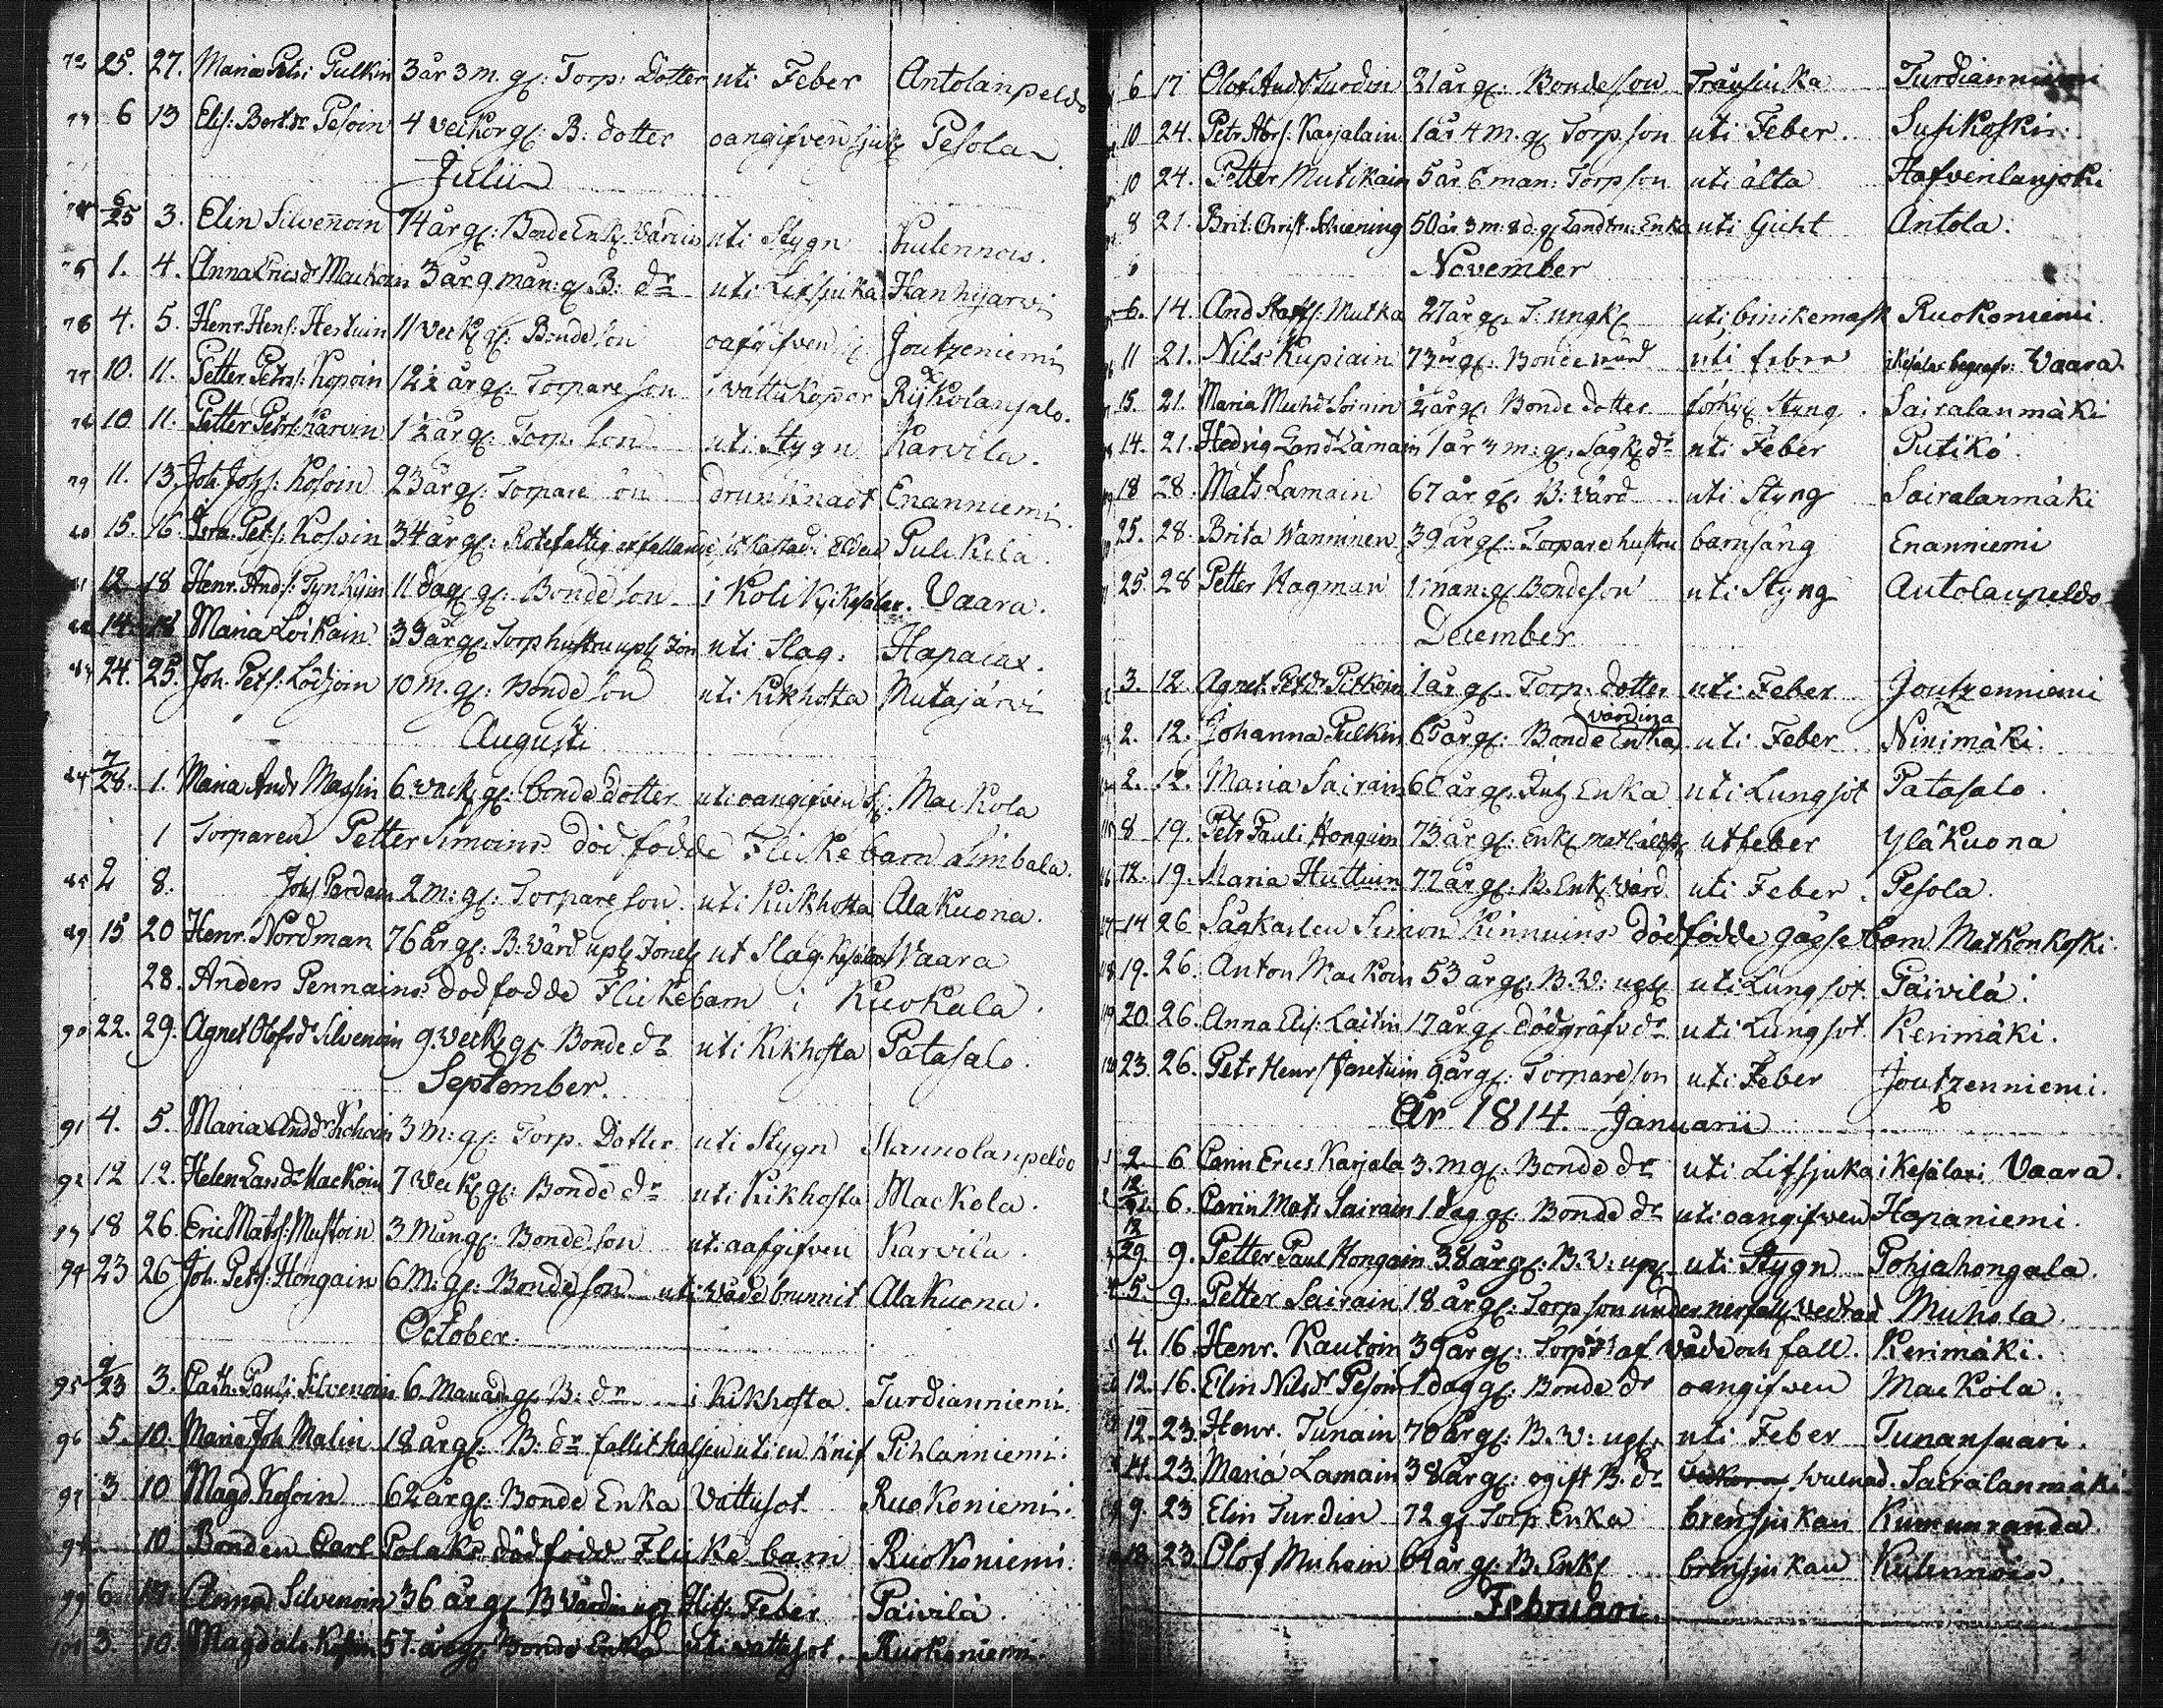 72 25. 27. Maria Petri Pulkin 3 år 3 m. gl: Torp: Dotter uti Feber Antolanpeldo
6 13 Elis: Bert:dr Pesoin 4 veckor gl: B: dotter oangifven sjuk Pesola
Julii
6/25 3. Elin Silvenoin 74 år gl: Bonde Enk: Värdin uti Stygn Kulennois.
75 1. 4. Anna Ericsdr Mackoin 3 år 9 mån: gl B: dr uti Lifsjuka Hanhijarvi
76 4. 5. Henr. Hens: Hertuin 11 veck gl: Bonde son oafgifven Joutzeniemi
77 10. 11. Petter Petrs: Kopoin 12½ år gl: Torpare son i vattukopor Rijkolansalo.
78 10 11. Petter Petrs: Karvin 1½ år gl: Torp. son uti Stygn Karvila.
79 11. 13. Joh. Johs: Kosoin 23 år gl: Torpare son drunknadt Enanniemi.
80 15. 16. Petrs: Kosoin 34 år gl: Rotefattig Elden Pulikila
81 12 18 Henr. Ands: Tynkyin 11 dag gl: Bonde son i Kolik, Kesälax. Vaara.
82 14. 18 Maria Loikain 33 år gl: Torp hustru uti Slag. Hapaiax.
83 24. 25. Joh. Pets: Lodjoin 10 m. gl: Bonde son uti Kikhosta Mutajärvi
Augusti
84 7/28. 1. Maria Andr Massin 6 veck gl: bonde dotter uti oangifven sj: Mackola
1 Torparen Petter Simoins dödfödde Flickebarn Simbala.
85 2 8. Johs Pardain 2 m: gl: Torpare son uti Kikhosta Alakuona.
89 15 20 Henr. Nordman 76 år gl: B: Värd ut Slag. Kesälax Vaara
28. Anders Pennains dödfödde Flickebarn i Kuokala.
90 22. 29. Agnet Olofsdr Silvenoin 9 veck gl. Bonde dr uti Kikhosta Patasalo.
September.
91 4. 5. Maria Anddr Kohoin 3 m: gl: Torp. Dotter uti Stygn Hannolanpeldo
92 12 12. Helen Larsdr Mackoin 7 veck gl: Bonde dr uti Kikhosta Mackola.
93 18 26 Eric Mats: Mustoin 3 mån gl: Bonde son uti aafgifven Karvila.
94 23 26 Joh. Petrs: Hongain 6 M: gl: Bonde son uti våde brunnit Alakuona.
October.
95 9/23 3. Cath. Pauls: Silvenoin 6. Månad gl B: dr i Kikhosta. Turdianniemi.
96 5. 10. Maria Joh Malin 18 år gl: B: dr fallit halsen uti en Knif Pihlanniemi.
97 3 10 Magd. Kosoin 62 år gl. Bonde Enka Vattusot Ruokoniemi.
98 10. Bonden Carl Polaks dödfödd Flicke barn Ruokoniemi.
99 6 17. Anna Silvenoin 36 år gl B Värdin Hits. Feber Päivilä.
100 3. 10. Magdal. Kosoin 57. år gl. Bonde Enka uti vattusot. Ruokoniemi.
6 17 Olof Andrs Turdin 21 år gl: Bondeson Tränsjuka Turdianniemi
10 24. Petr Abrs. Karjalain 1 år 4 m. gl Torp son uti Feber. Susikoskis.
10 24. Petter Mutikain 5 år 6 man: Torp son uti älta Hafvenlanjoki
8 21. Brit: Christ. 50 år 3 m: 8 d: gl Enka uti Gicht Antola.
November
6. 14. And Staffs: Mutka 27 år gl. T. ungk uti binikemask Ruokoniemi
11 21. Nils Kupiain 73 år gl: Bonde värd uti feber Kesälax begrafv: Vaara.
15. 21. Maria Michdr Loinin 2 år gl. Bonde dotter förkyl Styng. Sairalanmäki
14. 21. Hedvig Lamain 1 år 4 m: gl. Sagk dr uti Feber Putikó.
18 28. Mats Lamain 67 år gl. B: Värd uti Styng Sairalanmäki
25. 28. Brita Wanninen 39 år gl: Torpare hustru barnsäng Enanniemi
25. 28 Petter Hagman 1 man: gl Bondeson uti Styng Antolanpeldo
December
3. 12. Agnet. Petdr Pitkoin 1 år gl. Torp. dotter uti Feber Joutzenniemi
2. 12. Johanna Pulkin 65 år gl: Bonde Enka värdina uti Feber Niñimäki.
2. 12. Maria Sairain 60 år gl. Enka uti Lungsot Patasalo.
8 19. Petr Pauli Hongain 73 år gl: Enkl ut feber Yläkuona
12. 19. Maria Huttuin 72 år gl. B. Enk Värd uti Feber. Pesola
14 26 Sågkarlen Simon Kinnuins dödfödde gåsse barn Matkonkoski.
19. 26. Anton Mackoin 53 år gl. B. V: uti Lungsot. Päivilä.
20. 26. Anna Elis: Laitin 17 år gl dödgräfv dr uti Lungsot Kerimäki.
23. 26. Petr Henrs 9 år gl: Torpare son uti Feber Joutzenniemi.
År 1814. Januarii
2. 6 Carin Erics Karjala 3. m gl. Bonde dr uti Lifsjuka i Kesälaxi Vaara.
6. Carin Mats Sairain 1 dag gl. Bonde dr uti oangifven Hapaniemi.
12/29. 9. Petter Paul Hongain 38 år gl: B. V: uti Stygn Pohjahongala.
5. 9. Petter Sairain 18 år gl: Torp son under vedrad Muhola.
4. 16 Henr. Kautoin 39 år gl: Torp af våde och fall. Kerimäki.
12. 16. Elin Nilsdr Pesoin 1 dag gl. Bonde dr oangifven Mackola.
12. 23. Henr. Tunain 70 år gl. B. V: uti Feber Tunansaari.
11. 23. Maria Lamain 38 år gl: ogift B. dr Sairalanmäki
9. 23 Elin Turdin 72 gl Torp Enka brensjukan Kumuranda.
18. 23. Olof Muhoin 64 år gl. B. Enkl brensjukan Kulennois.
Februari